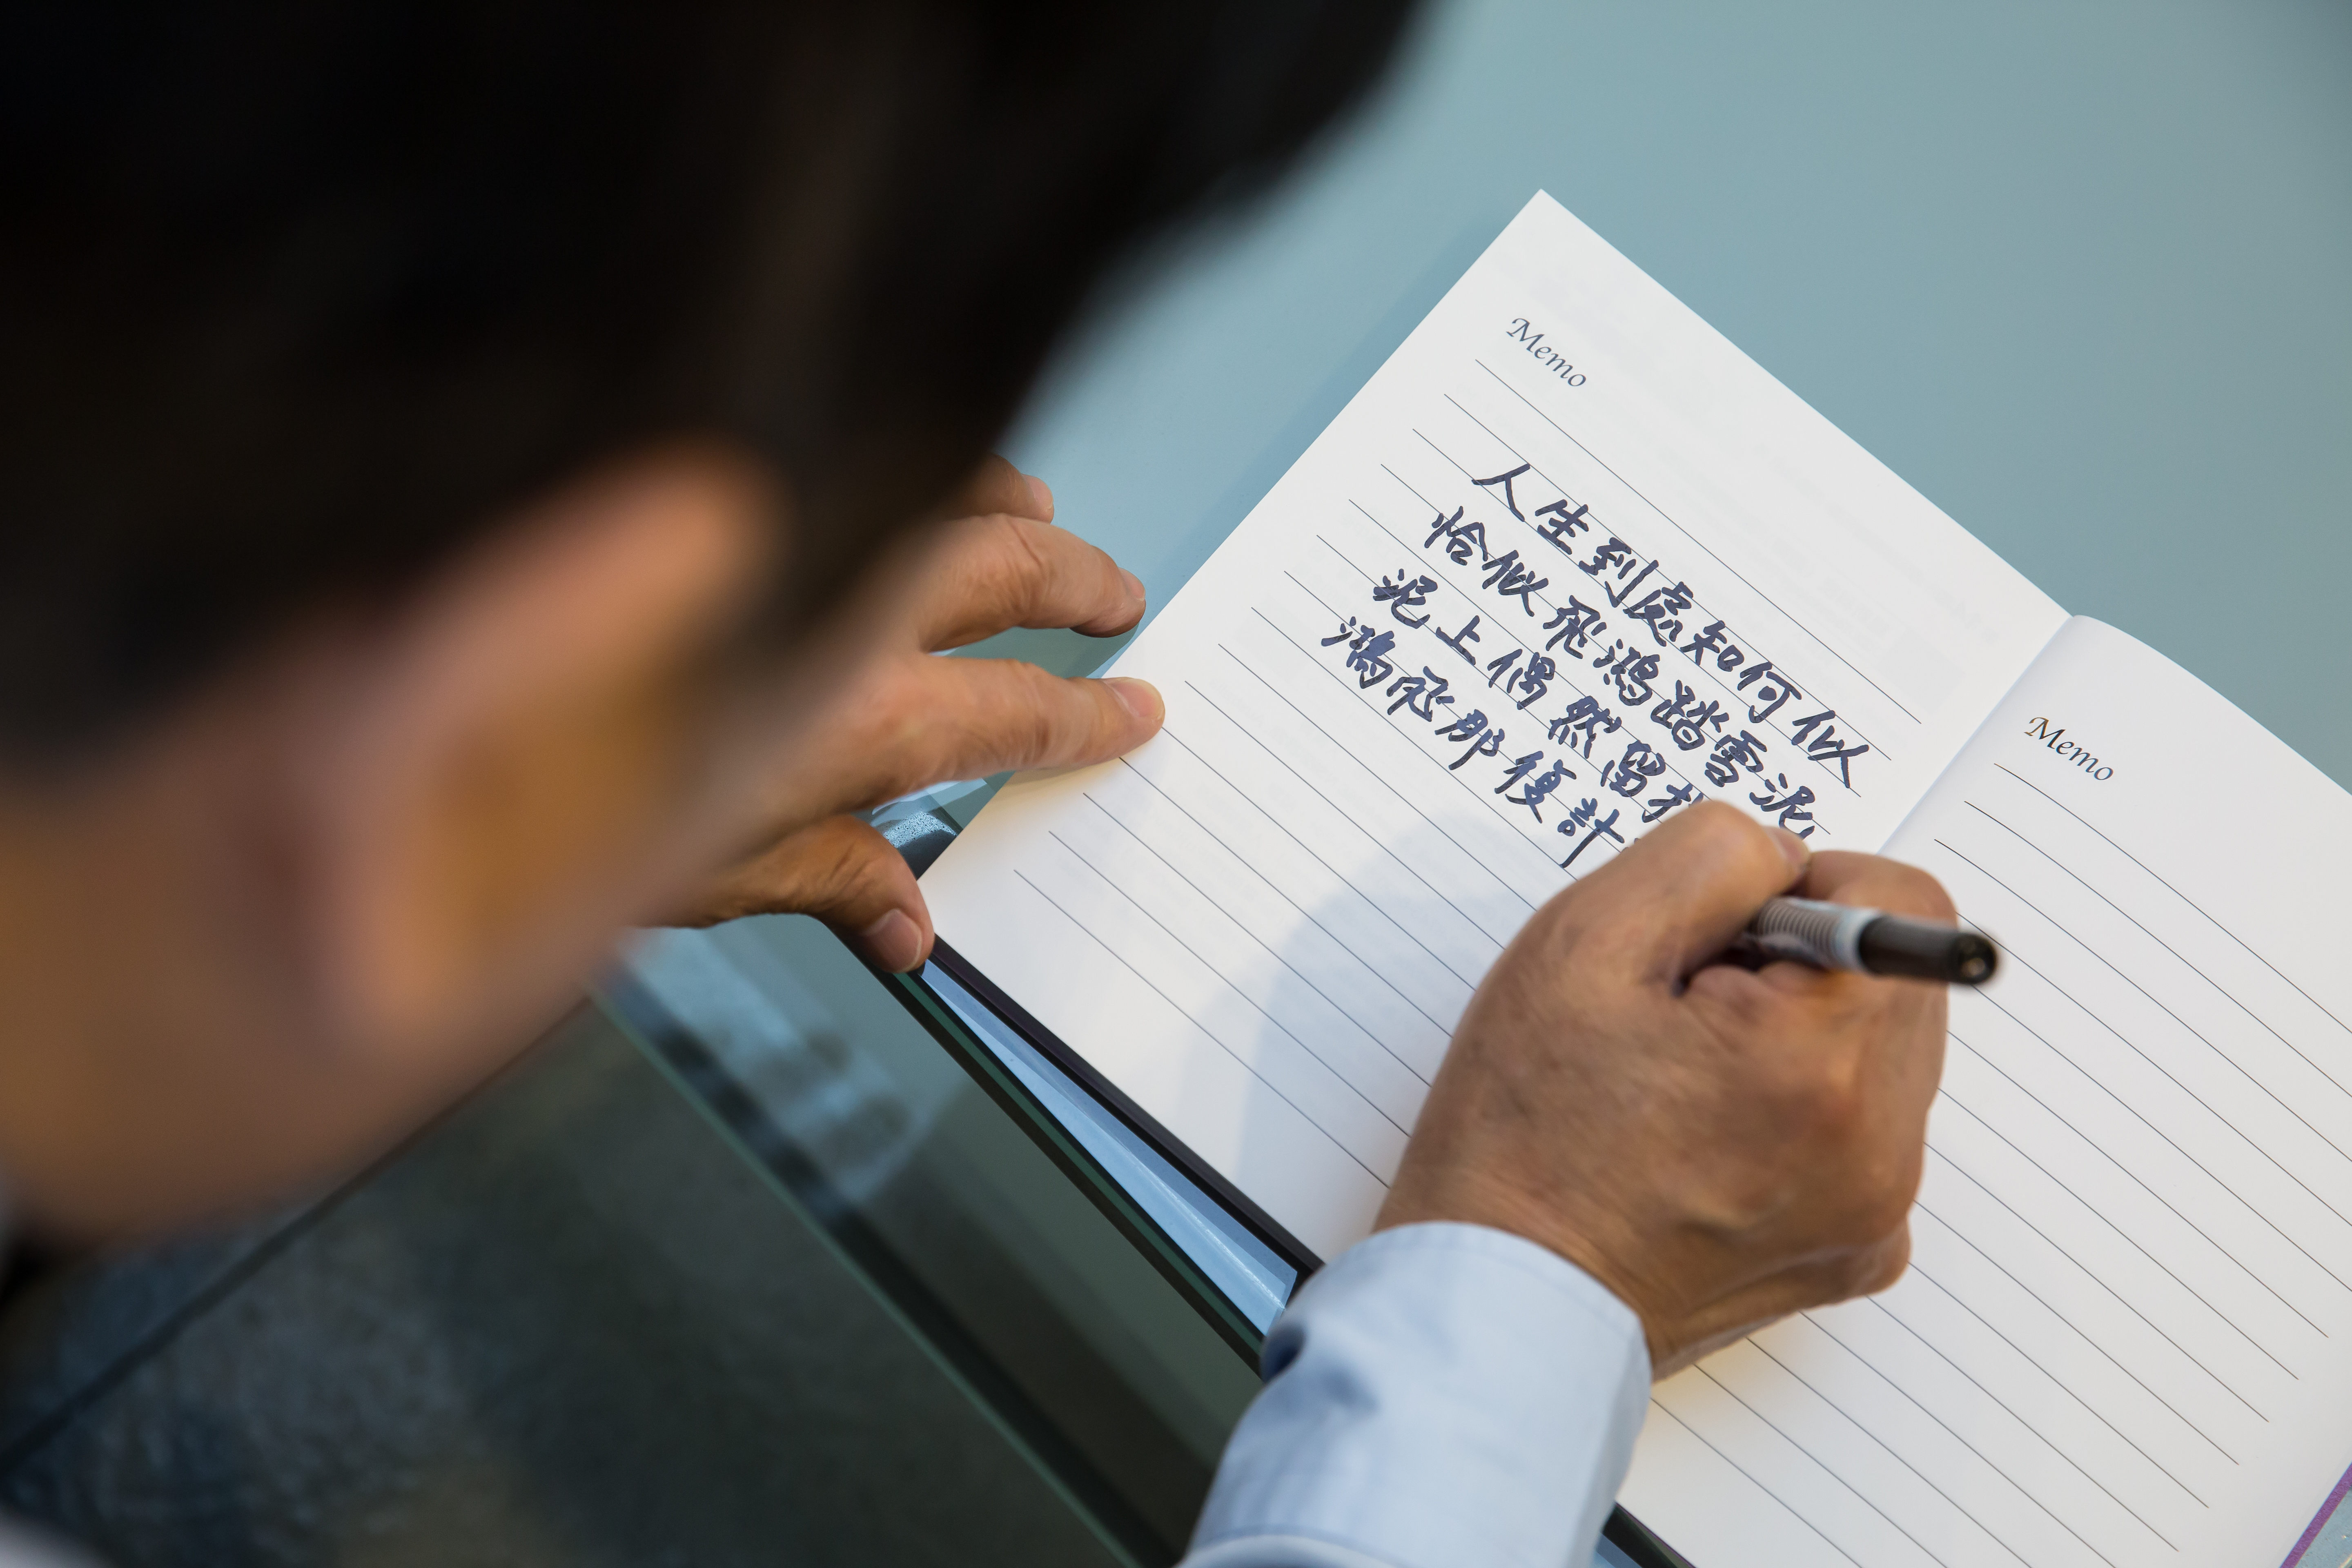 Memo
人生到處知何似
恰似飛鴻踏雪泥
泥上偶然留
鴻飛那復計
Memo